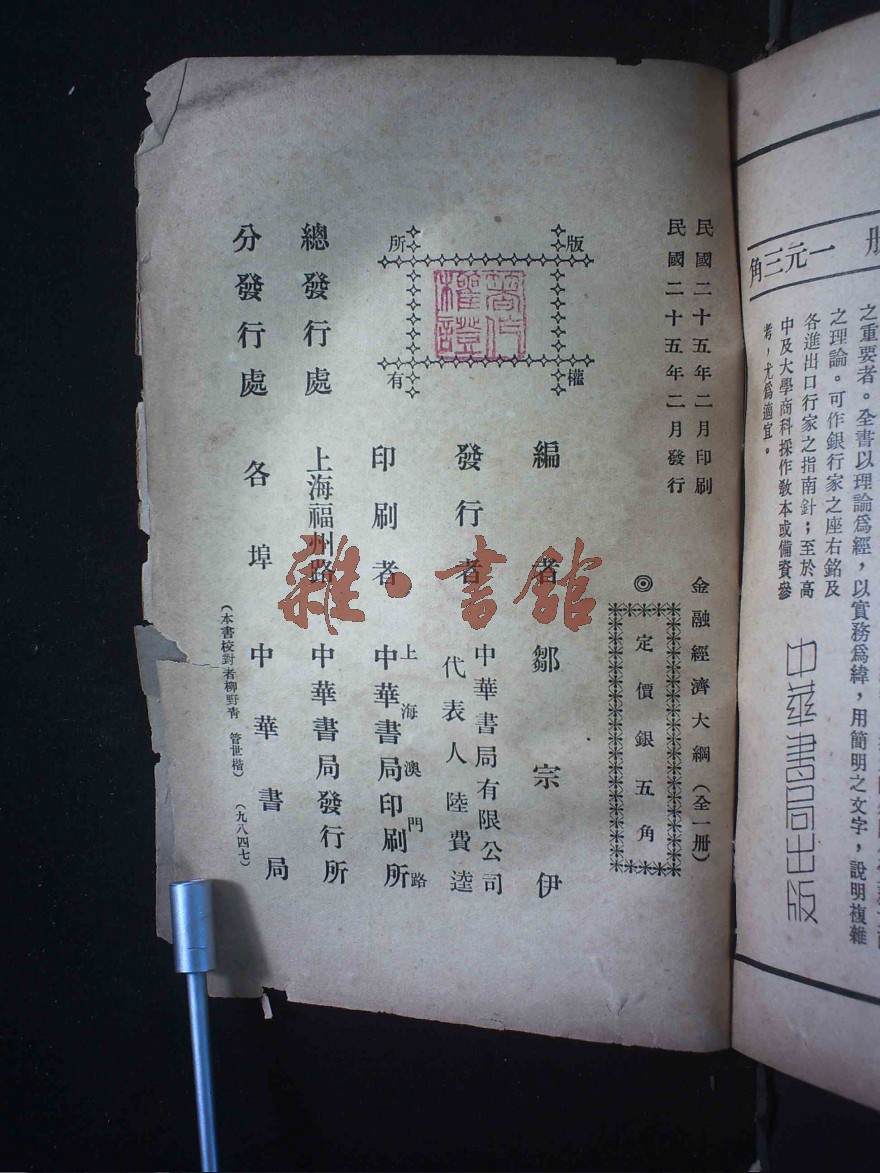 冊 一元三角
之重要者。全書以理論爲經，以實務爲緯，用簡明之文字，說明複雜
之理論。可作銀行家之座右銘及
各進出口行家之指南針；至於高
中及大學商科採作教本或備資參
考，尤爲適宜。
中華書局出版
民國二十五年二月印刷
民國二十五年二月發行
金融經濟大綱（全一冊）
◎定價銀五角
版權所有
著作權證
編者 鄒宗伊
發行者 中華書局有限公司
代表人陸費逵
印刷者 上海澳門路
中華書局印刷所
總發行處 上海福州路 中華書局發行所
分發行處 各埠 中華書局
（本書校對者柳野青 管世楷）
（九八四七）
雜·書館